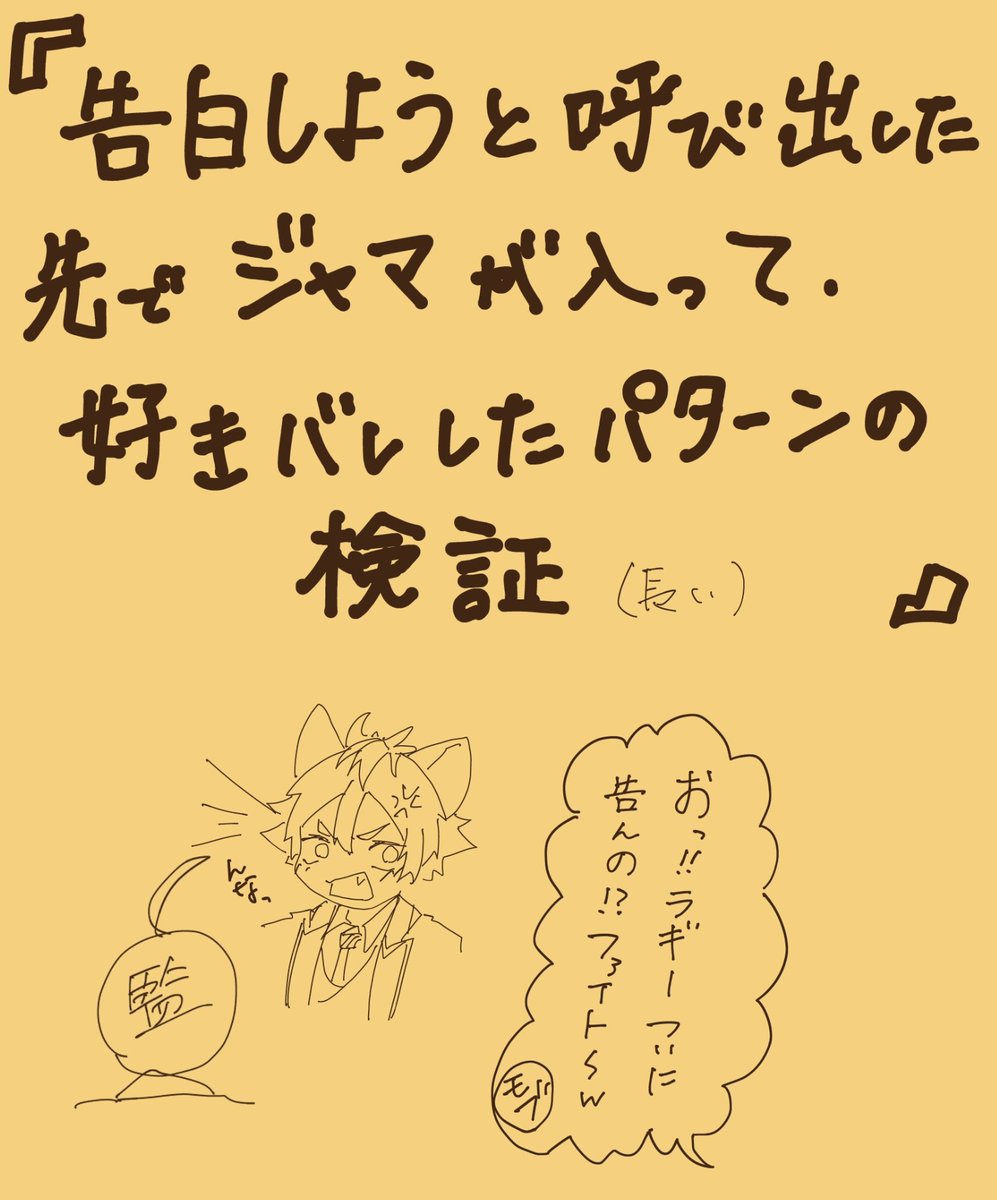 『告白しようと呼び出した
先でジャマが入って.
好きバレしたパターンの
検証(長い)』
んなっ
監
おっ!!ラギーついに
告んの!?ファイト〜w
モブ